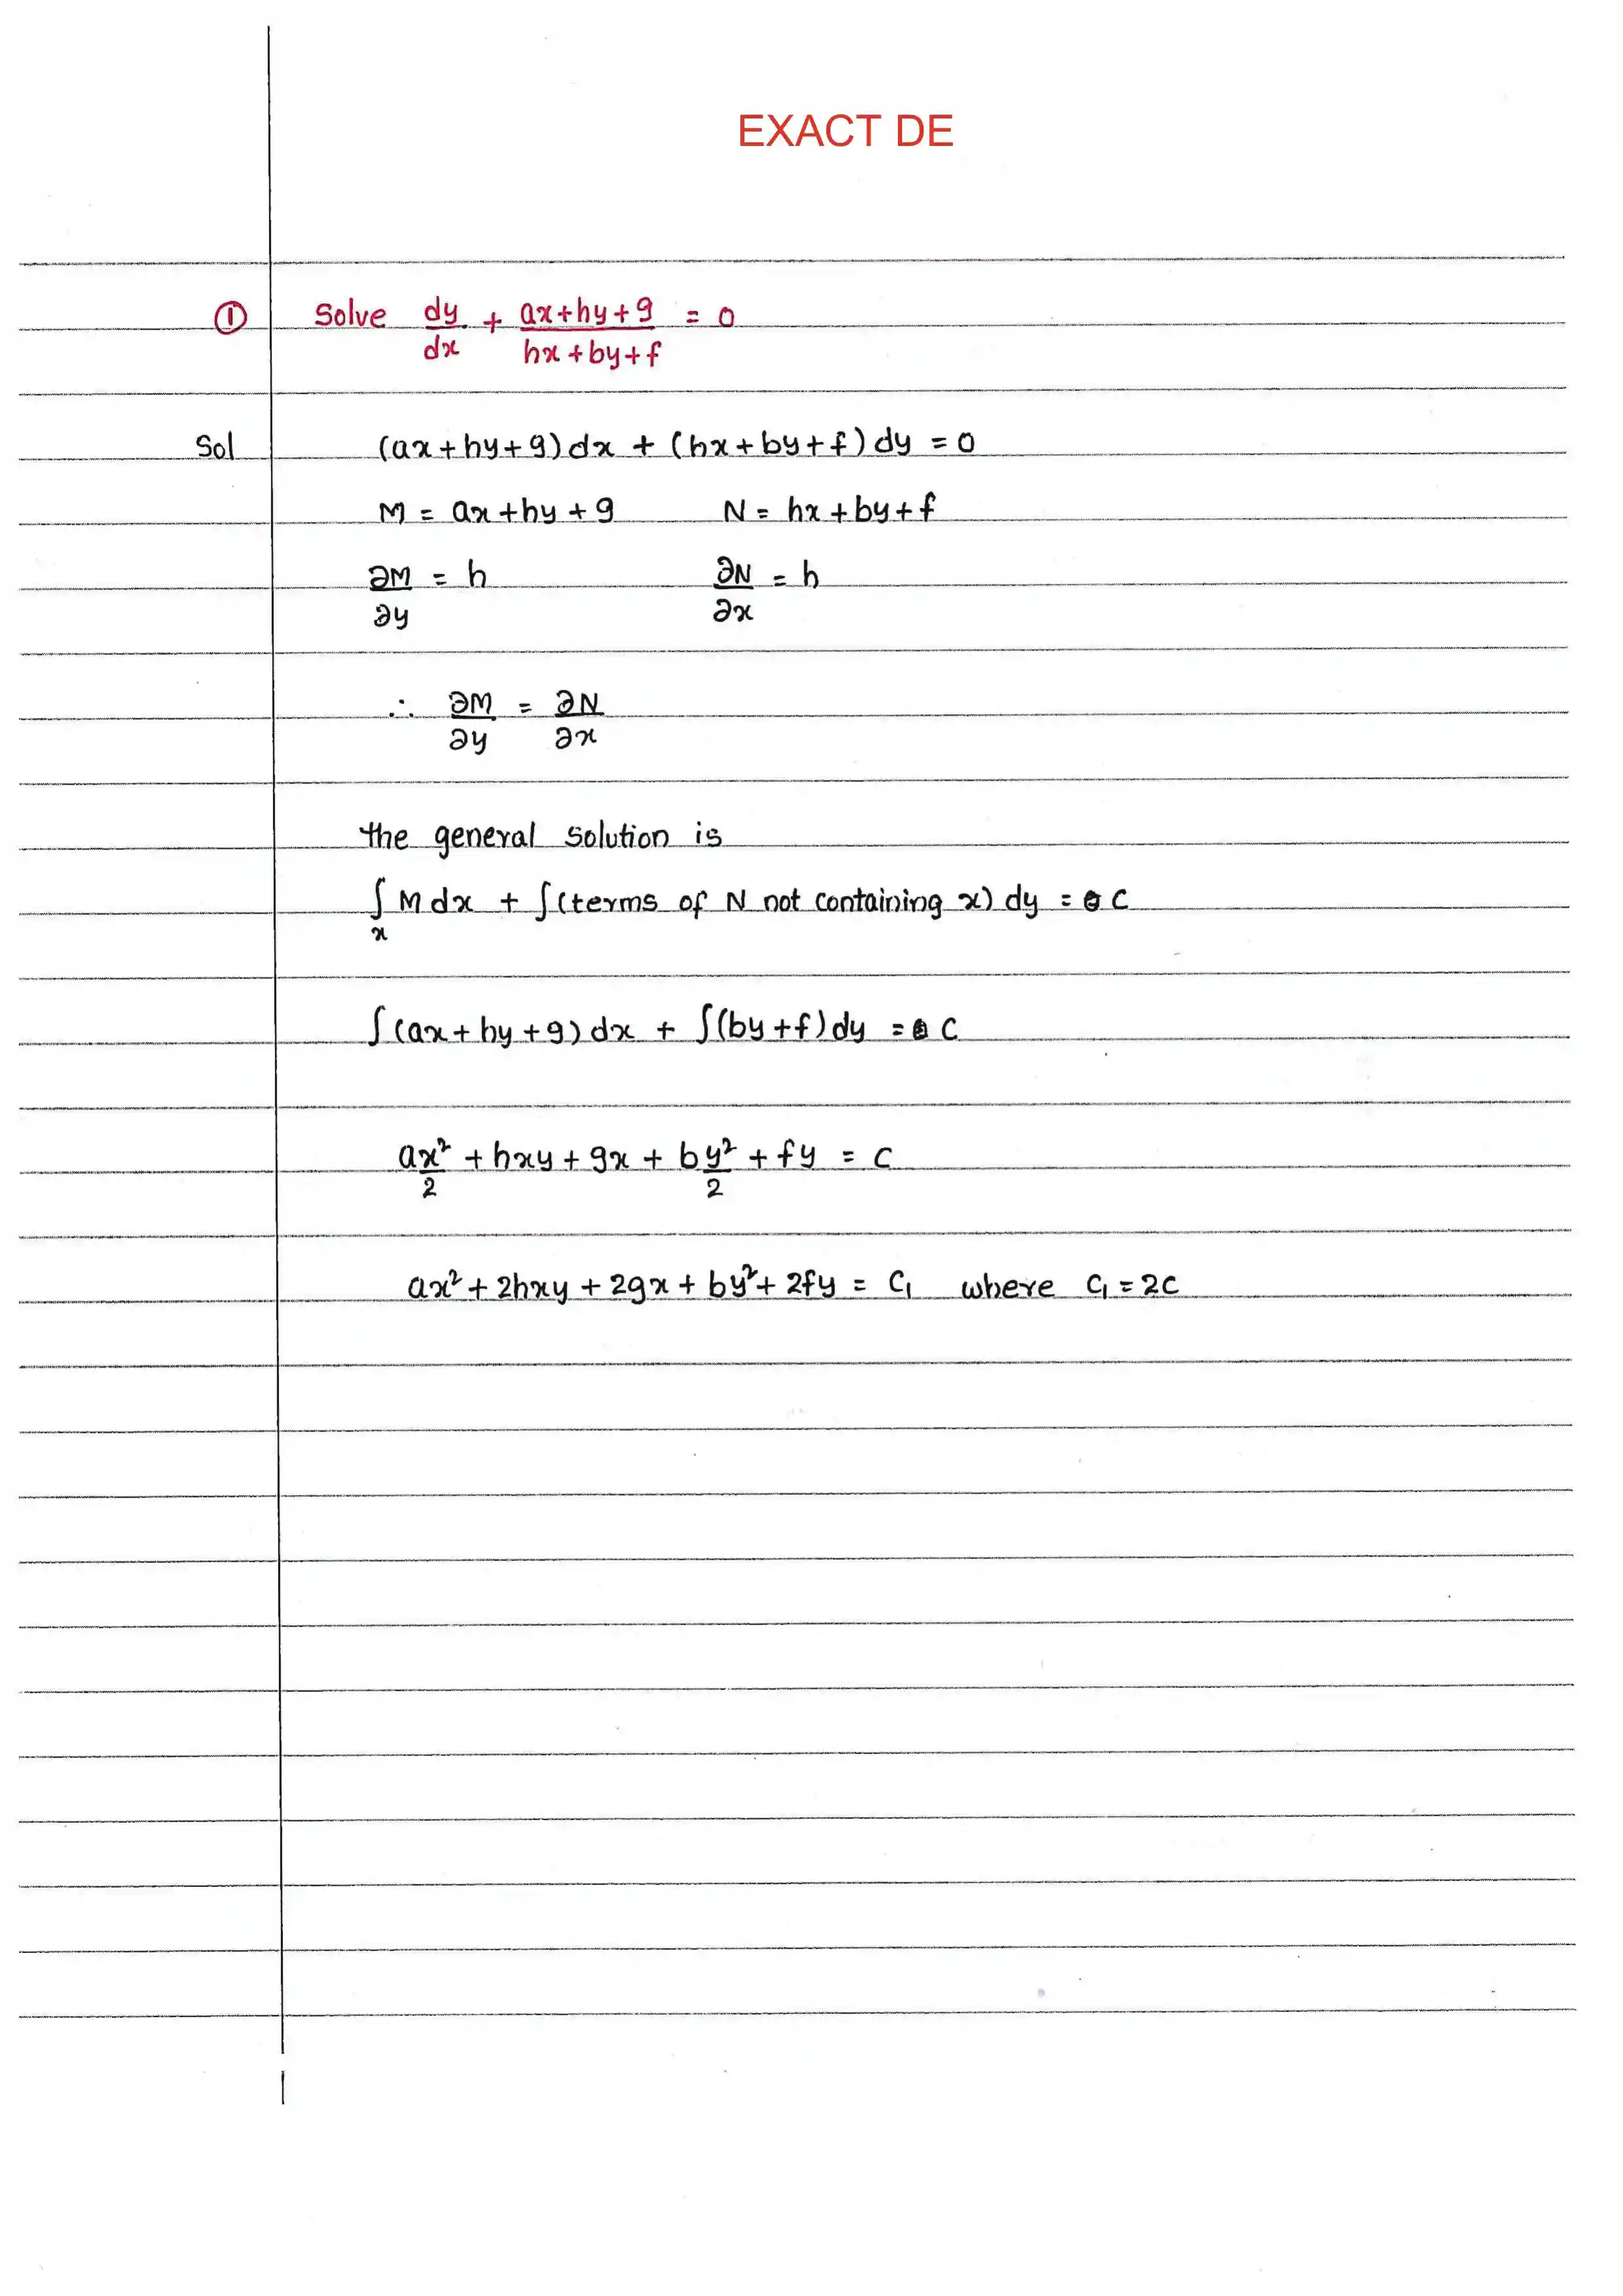 EXACT DE
① Solve dy/dx + (ax+hy+g)/(hx+by+f) = 0
Sol (ax+hy+g)dx + (hx+by+f)dy = 0
M = ax+hy+g N = hx+by+f
∂M/∂y = h ∂N/∂x = h
∴ ∂M/∂y = ∂N/∂x
the general solution is
∫ₓ M dx + ∫(terms of N not containing x) dy = C
∫(ax+hy+g)dx + ∫(by+f)dy = C
ax²/2 + hxy + gx + by²/2 + fy = C
ax² + 2hxy + 2gx + by² + 2fy = C₁ where C₁ = 2C